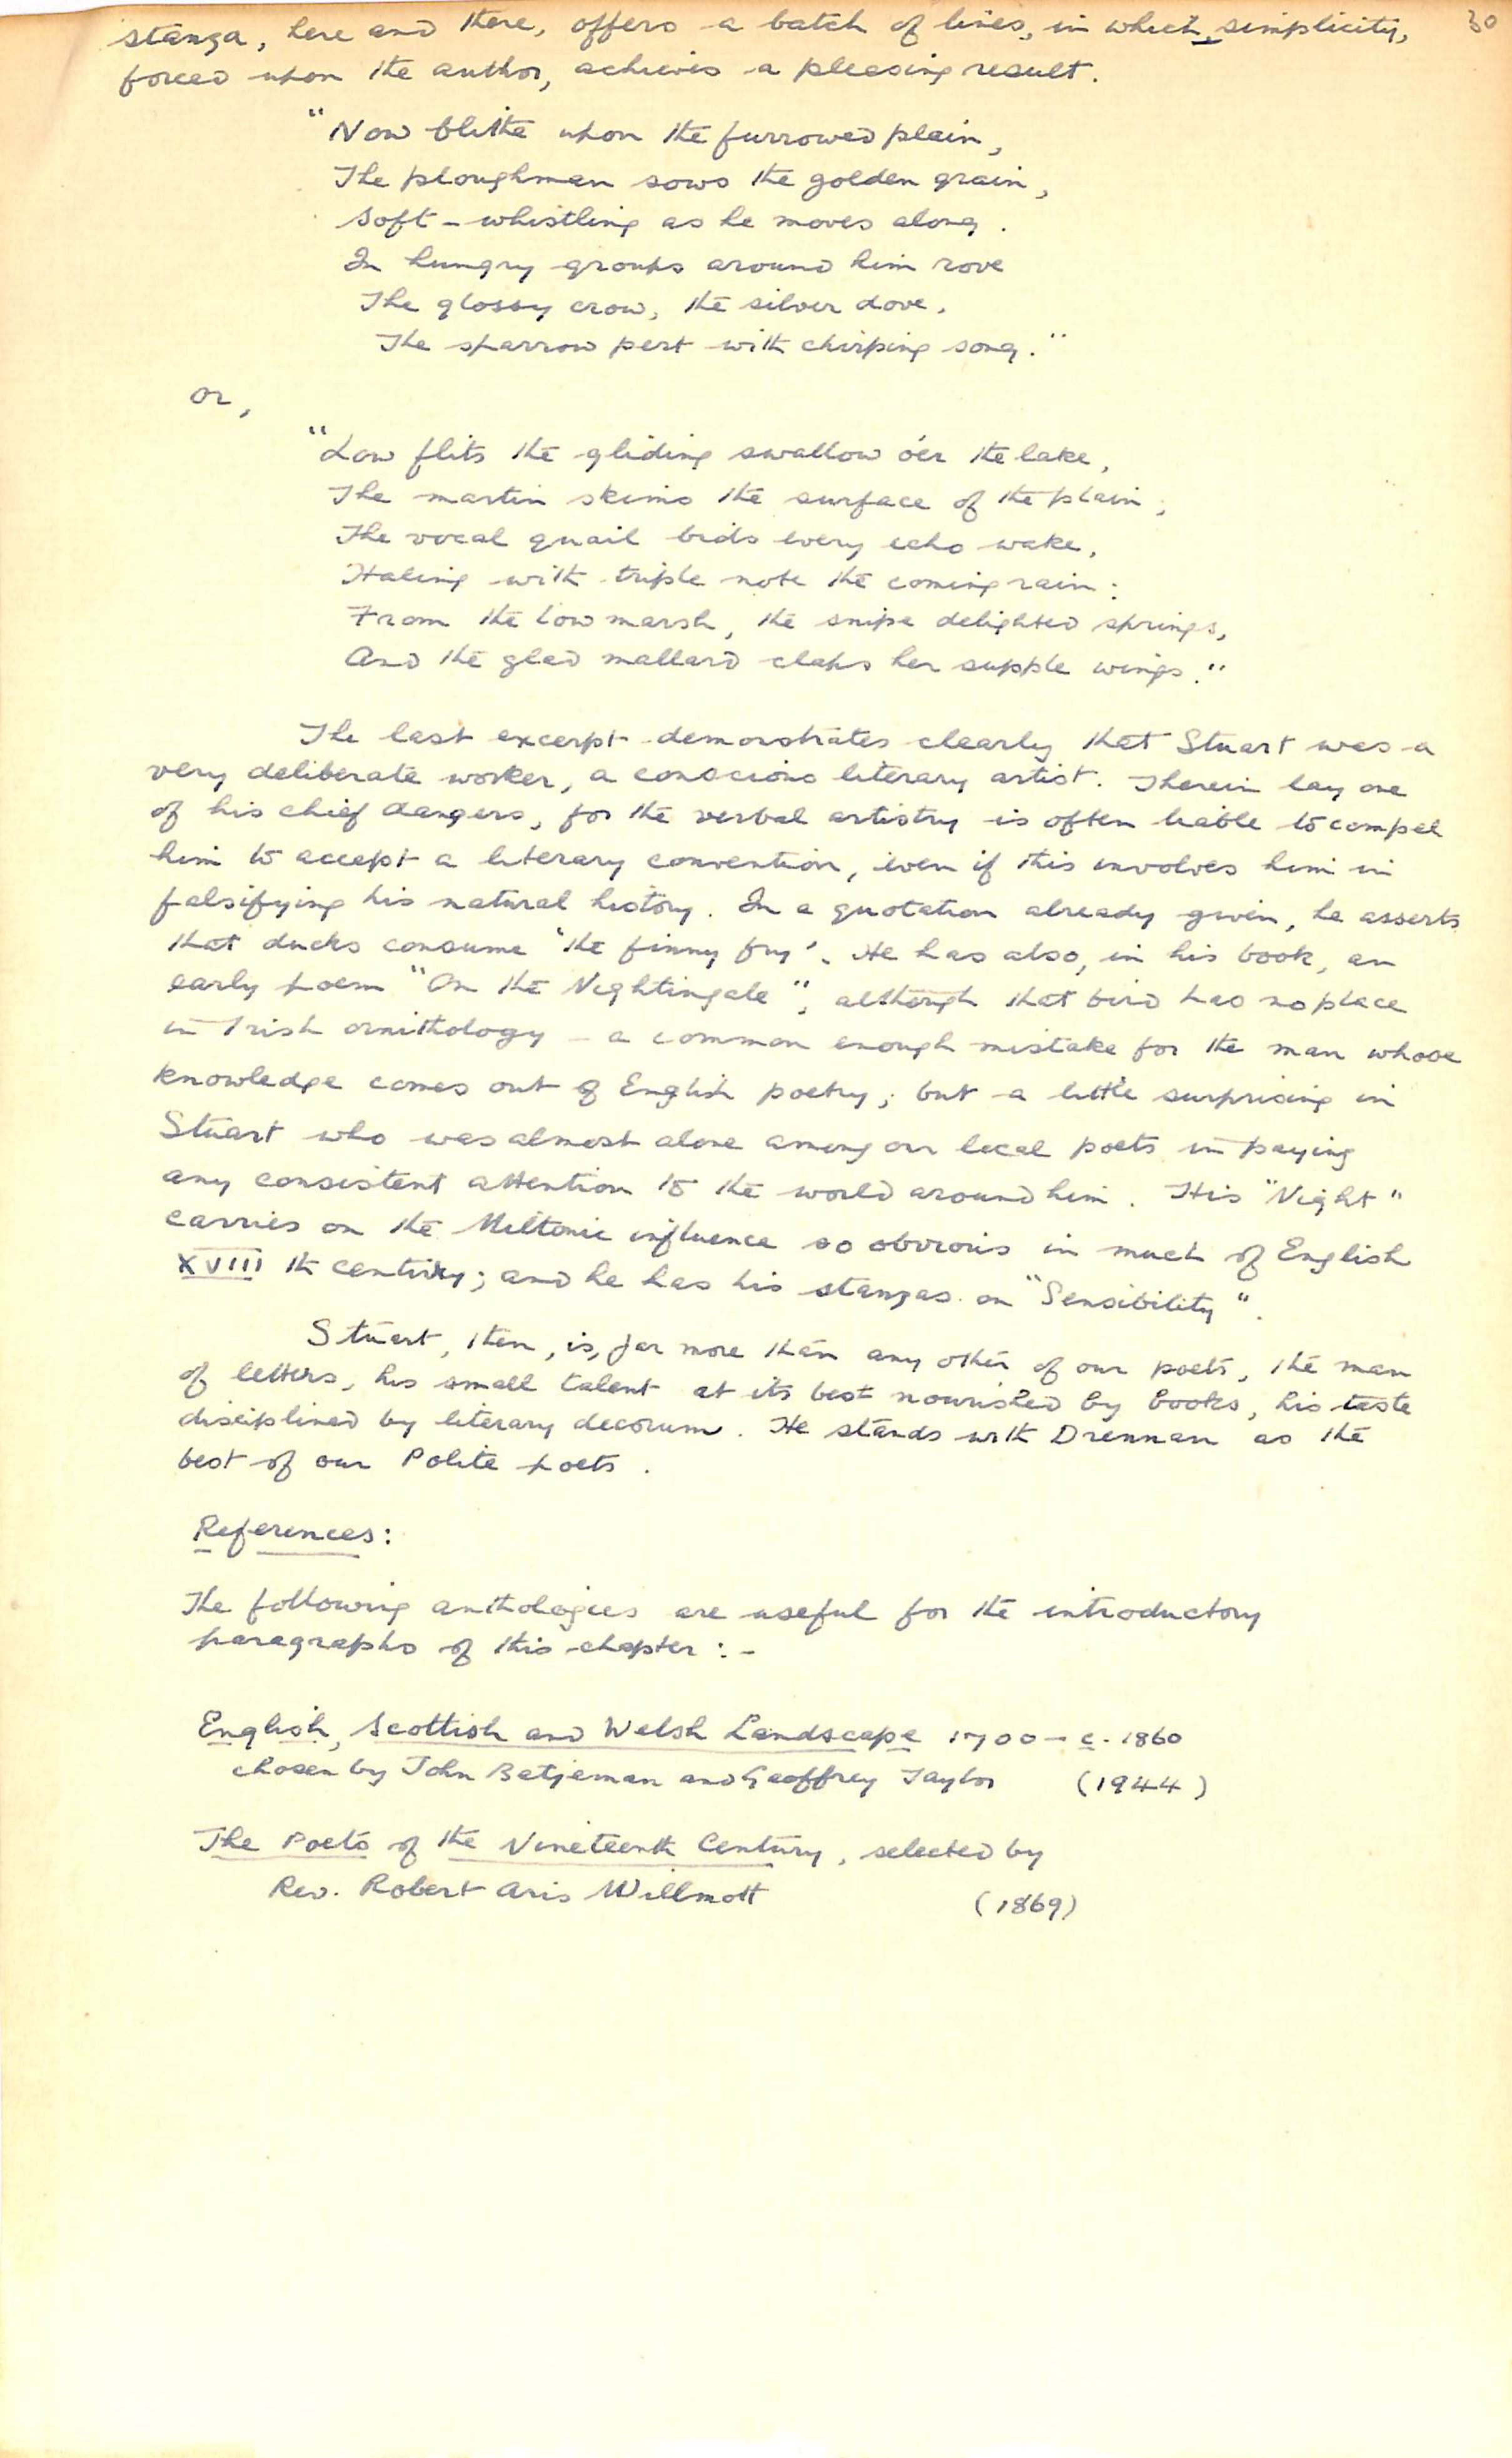 30
stanza, here and there, offers a batch of lines, in which, simplicity,
forced upon the author, achieves a pleasing result.
"Now blithe upon the furrowed plain,
The ploughman sows the golden grain,
Soft-whistling as he moves along.
In hungry groups around him rove
The glossy crow, the silver dove,
The sparrow pert with chirping song."
or,
"Low flits the gliding swallow o'er the lake,
The martin skims the surface of the plain;
The vocal quail bids every echo wake,
Haling with triple note the coming rain:
From the low marsh, the snipe delighted springs,
And the glad mallard claps her supple wings."
The last excerpt demonstrates clearly that Stuart was a
very deliberate worker, a conscious literary artist. Therein lay one
of his chief dangers, for the verbal artistry is often liable to compel
him to accept a literary convention, even if this involves him in
falsifying his natural history. In a quotation already given, he asserts
that ducks consume 'the finny fry'. He has also, in his book, an
early poem "On the Nightingale", although that bird has no place
in Irish ornithology - a common enough mistake for the man whose
knowledge comes out of English poetry; but a little surprising in
Stuart who was almost alone among our local poets in paying
any consistent attention to the world around him. His "Night"
carries on the Miltonic influence so obvious in much of English
XVIII th century; and he has his stanzas on "Sensibility".
Stuart, then, is, far more than any other of our poets, the man
of letters, his small talent at its best nourished by books, his taste
disciplined by literary decorum. He stands with Drennan as the
best of our Polite poets.
References:
The following anthologies are useful for the introductory
paragraphs of this chapter:-
English, Scottish and Welsh Landscape 1700 - c. 1860
chosen by John Betjeman and Geoffrey Taylor (1944)
The Poets of the Nineteenth Century, selected by
Rev. Robert Aris Willmott (1869)